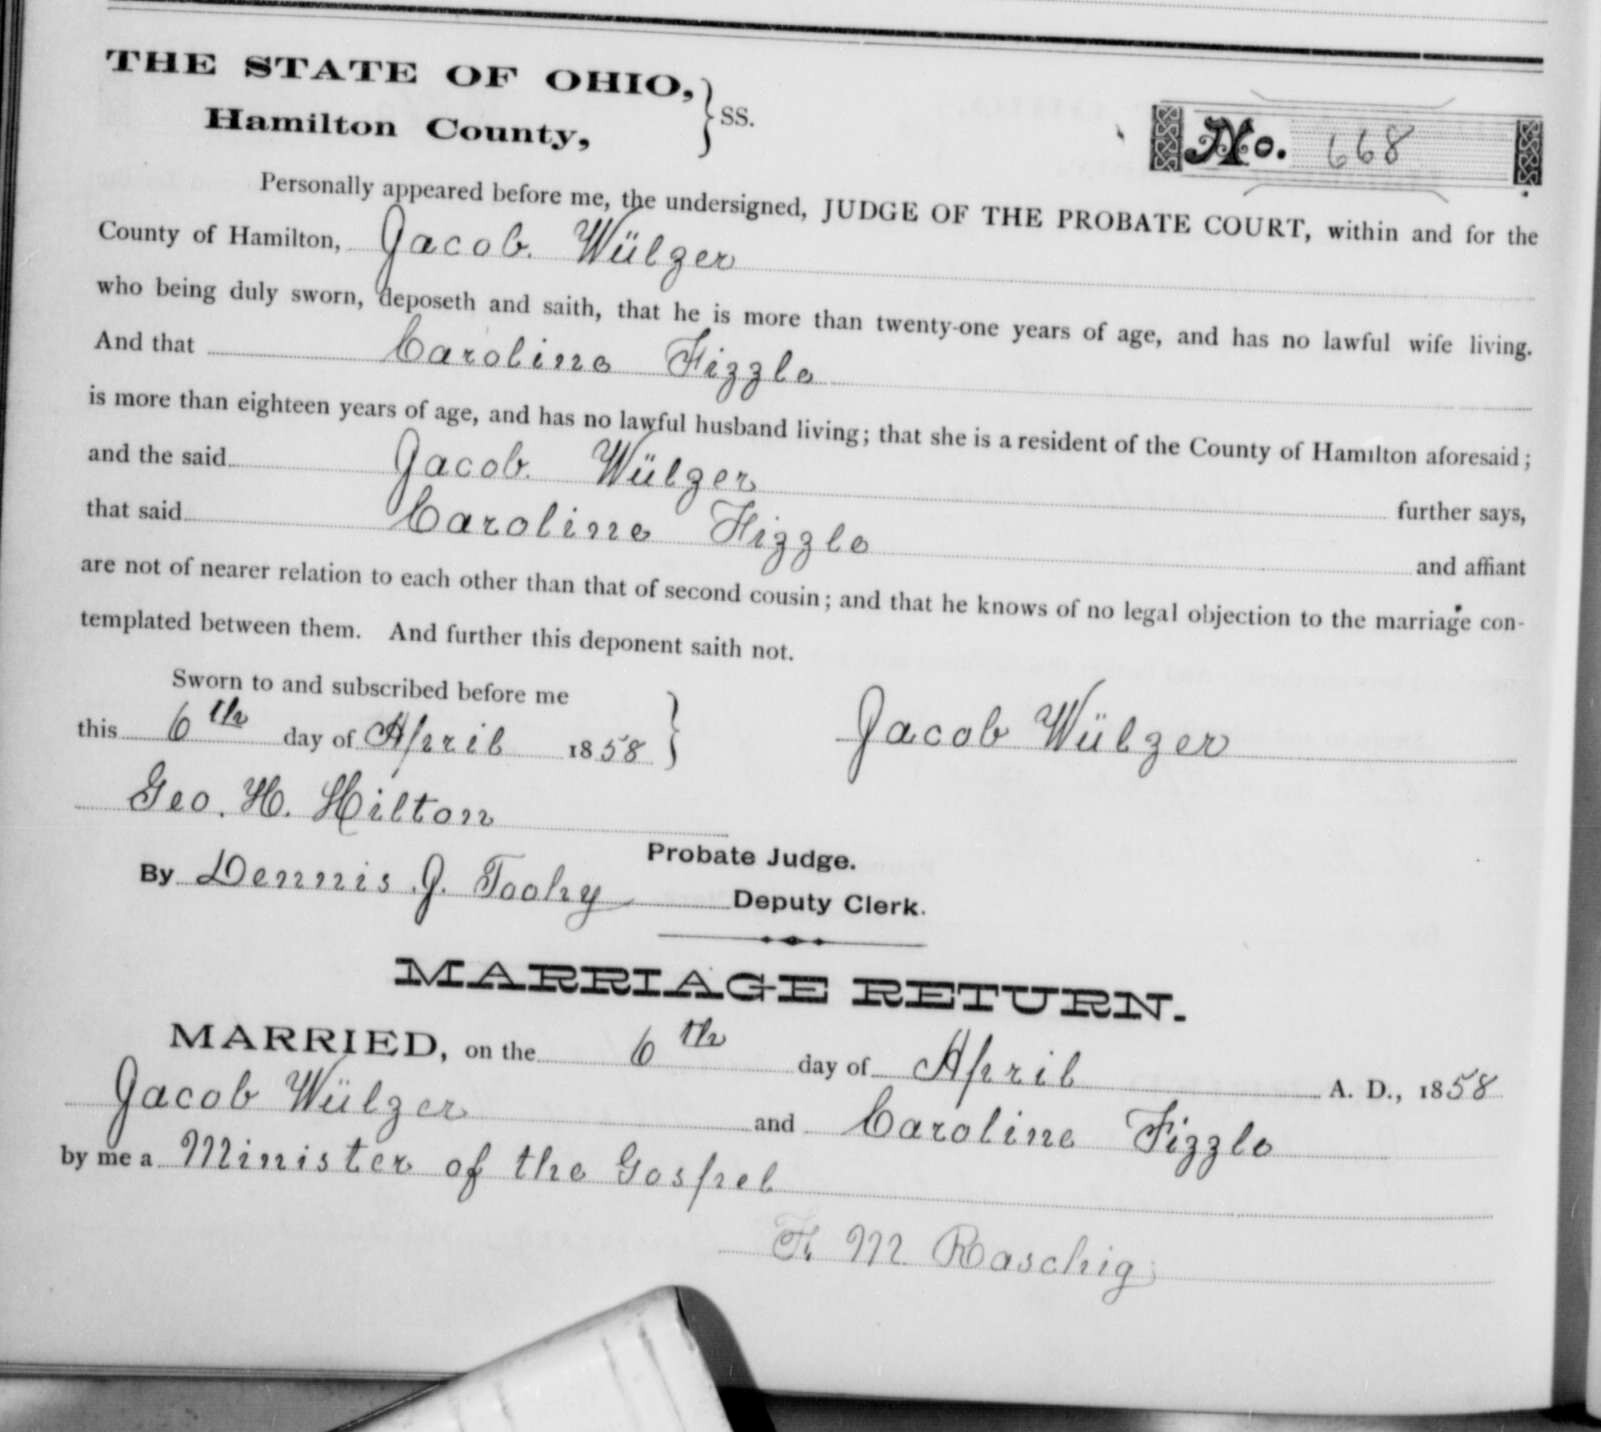 THE STATE OF OHIO,
Hamilton County, } SS.
No. 668
Personally appeared before me, the undersigned, JUDGE OF THE PROBATE COURT, within and for the
County of Hamilton, Jacob. Wülzer
who being duly sworn, deposeth and saith, that he is more than twenty-one years of age, and has no lawful wife living.
And that Caroline Fizzle
is more than eighteen years of age, and has no lawful husband living; that she is a resident of the County of Hamilton aforesaid;
and the said Jacob. Wülzer further says,
that said Caroline Fizzle and affiant
are not of nearer relation to each other than that of second cousin; and that he knows of no legal objection to the marriage con-
templated between them. And further this deponent saith not.
Sworn to and subscribed before me
this 6th day of April 1858 } Jacob Wülzer
Geo. H. Hilton
Probate Judge.
By Dennis J. Toohy Deputy Clerk.
MARRIAGE RETURN.
MARRIED, on the 6th day of April A. D., 1858
Jacob Wülzer and Caroline Fizzle
by me a Minister of the Gospel
F. M. Raschig